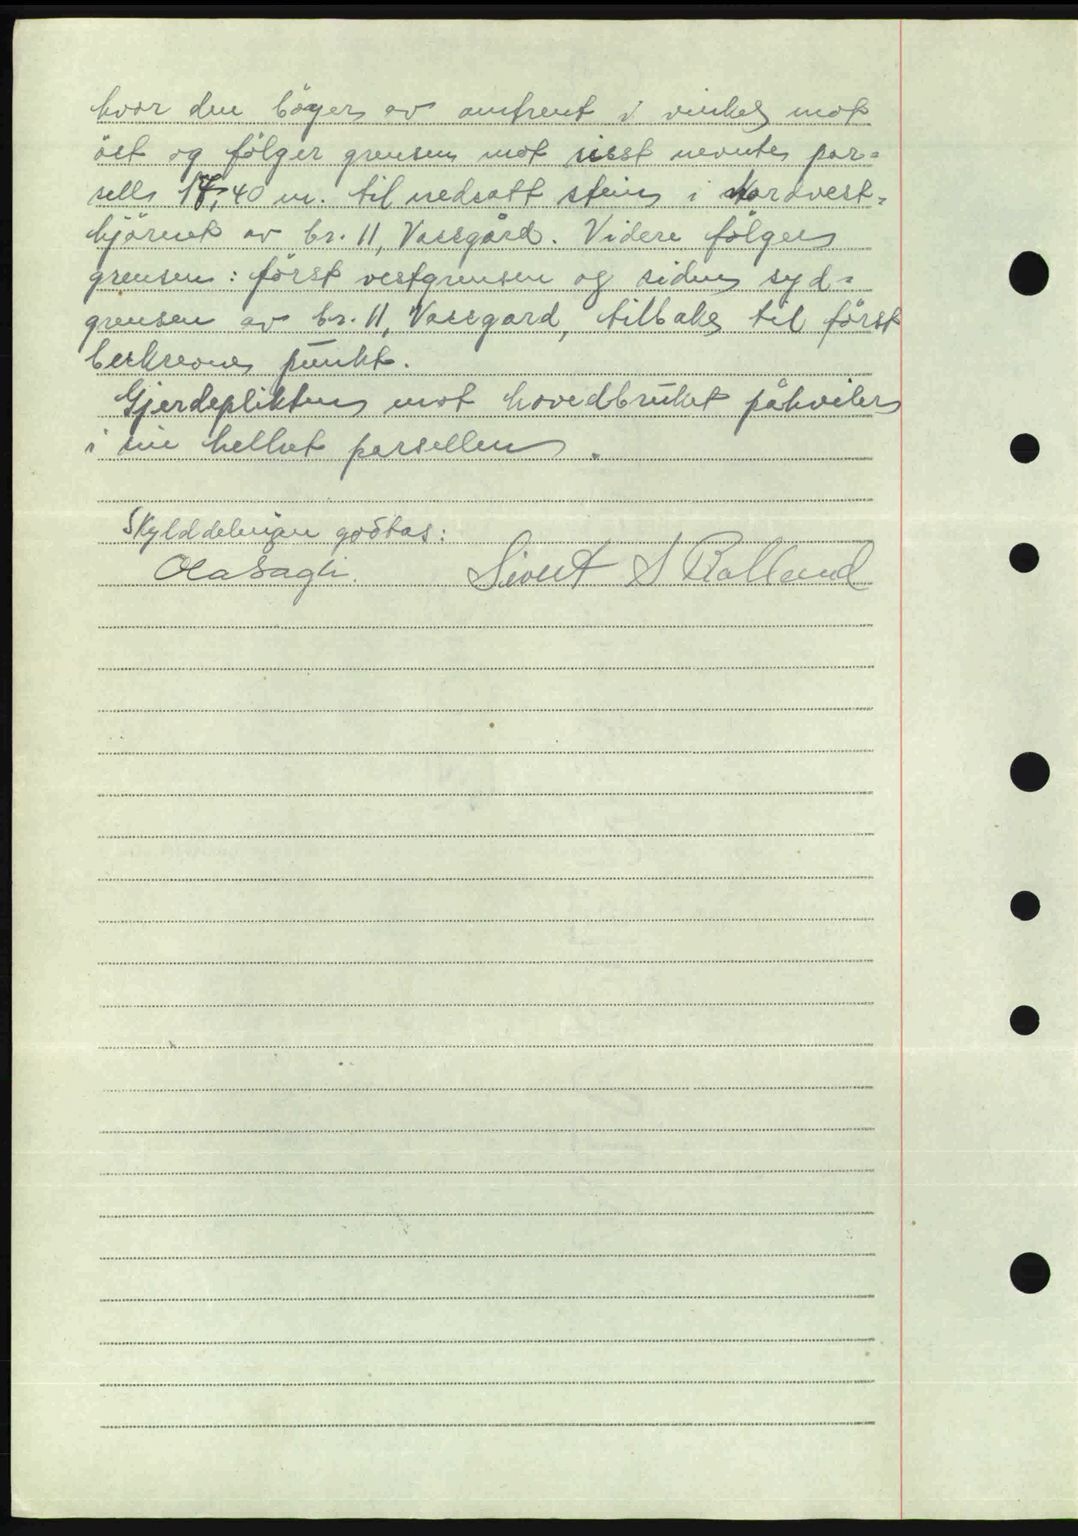 hvor den böyer av omtrent i vinkel mot
öst og fölger grensen mot sisst nevnte par=
sell 17,40 m. til nedsatt stein i Nordvest=
hjörnet av br. 11, Vassgård. Videre fölges
grensen: först vestgrensen og siden syd=
grensen av br. 11, Vassgard, tilbake til först
beskrevne punkt.
Gjerdeplikten mot hovedbruket påhviler
i sin helhet parsellen.
Skylddelingen godtas:
Ola Sagli. Sivert S Rolland